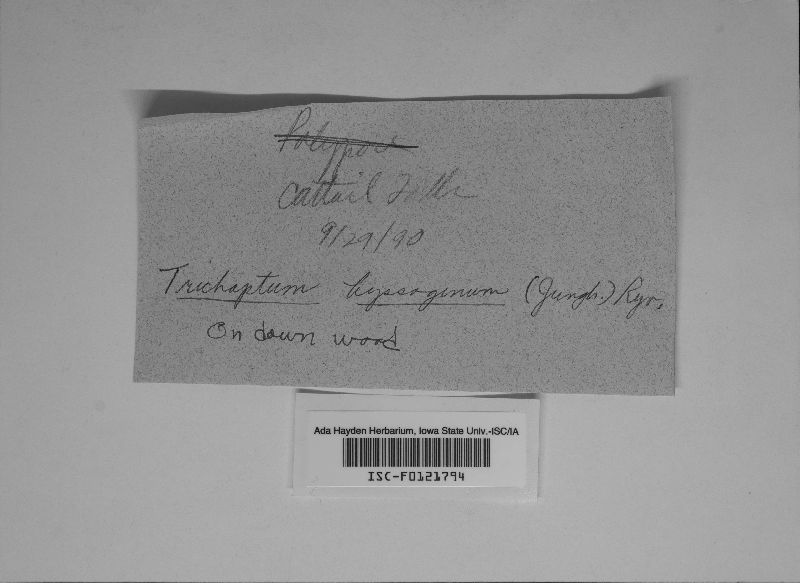 Polypore
Cattail Falls
9/29/90
Trichaptum byssogenum (Jungh.) Ryv.
On down wood
Ada Hayden Herbarium, Iowa State Univ.-ISC/IA
ISC-F0121794